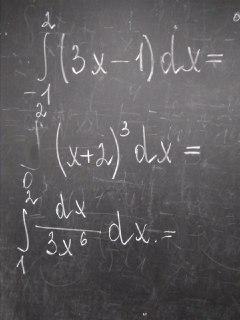 ∫₋₁² (3x-1)dx=
∫₀² (x+2)³dx=
∫₁² dx/3x⁶ dx.=